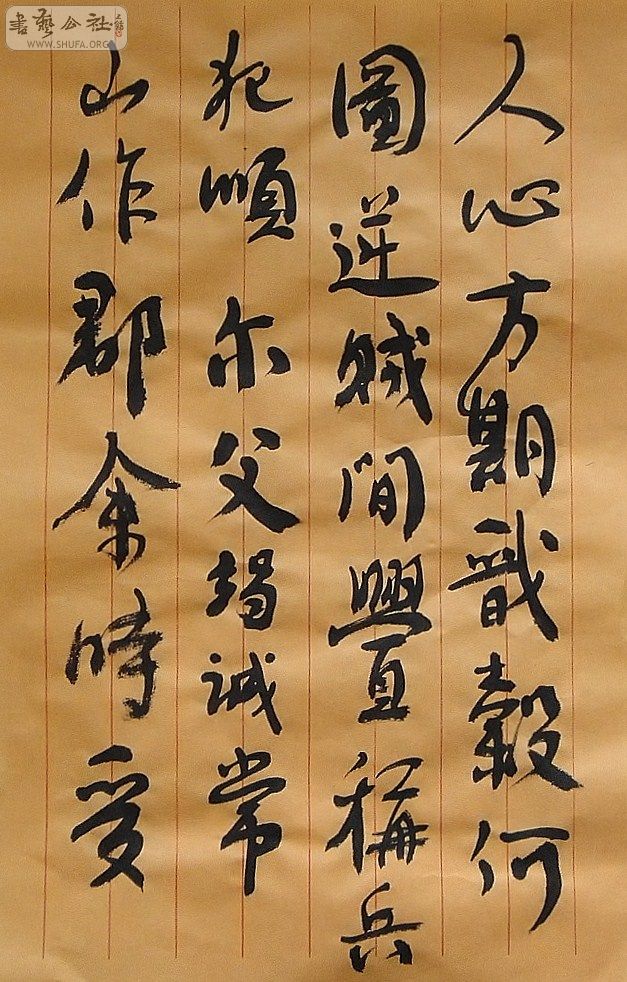 人心方期戩穀何
圖逆賊間舋稱兵
犯順尔父竭誠常
山作郡余時受
書藝公社
WWW.SHUFA.ORG